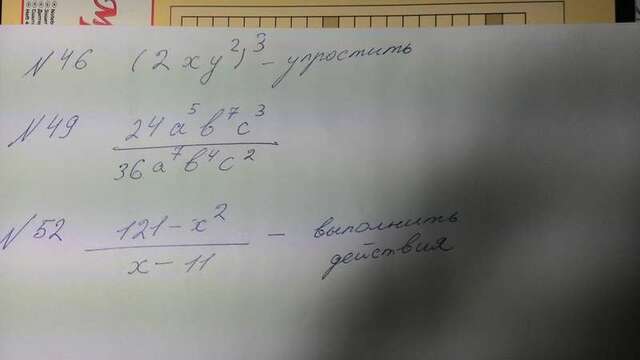 №46 (2xy²)³ – упростить
№49 24a⁵b⁷c³
36a⁷b⁴c²
№52 121-x² – выполнить
x-11 действия